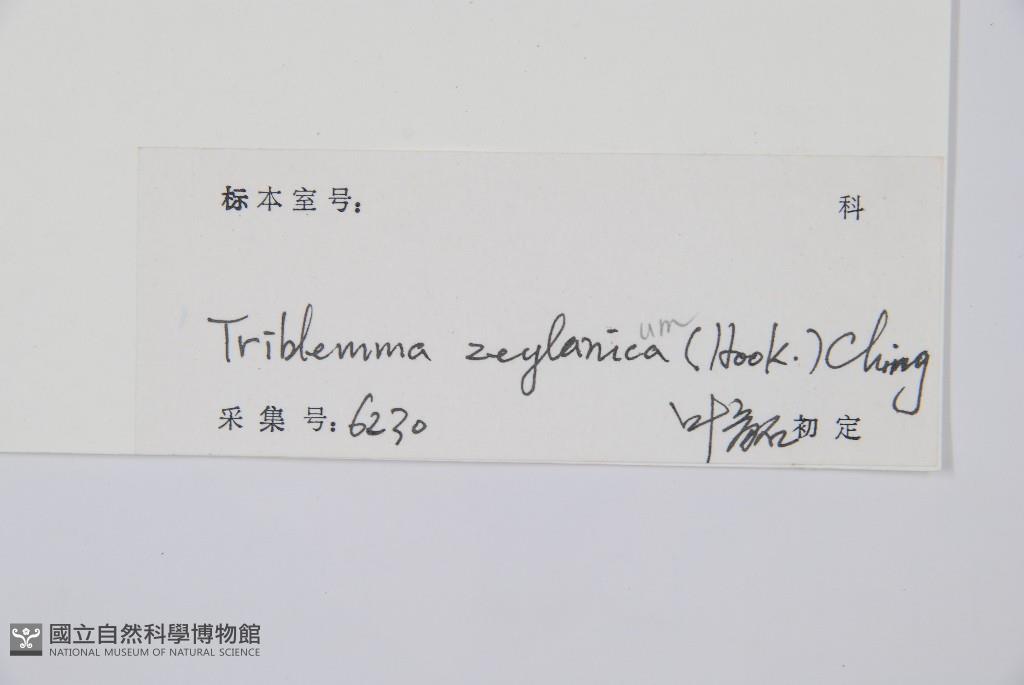 标本室号： 科
um
Triblemma zeylanica (Hook.) Ching
采集号：6230 叶 初定
國立自然科學博物館
NATIONAL MUSEUM OF NATURAL SCIENCE